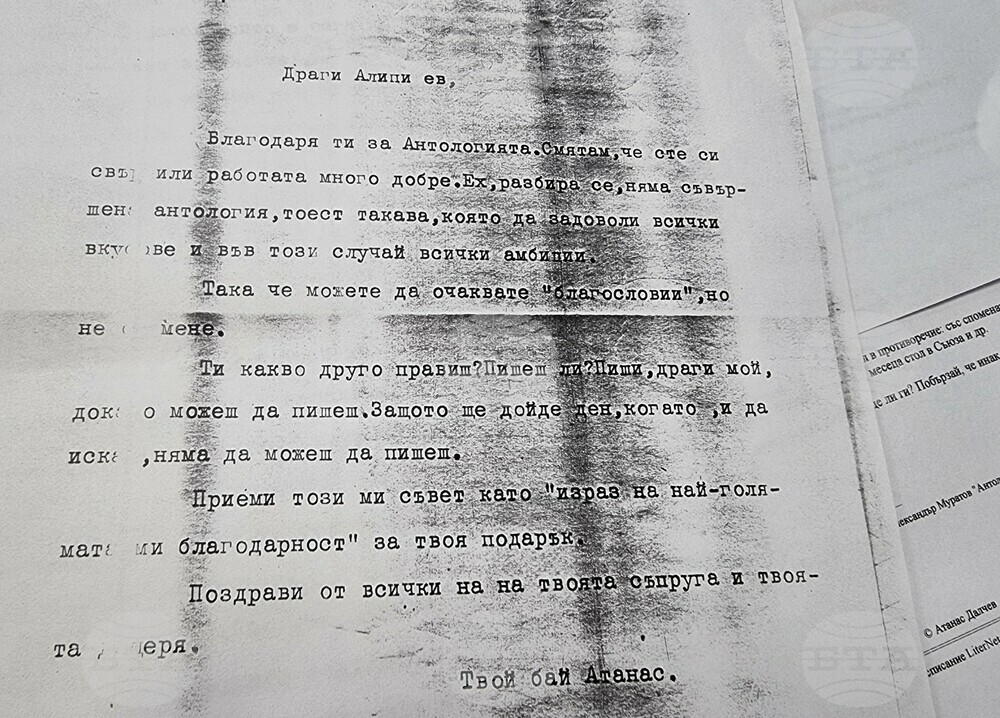 Драги Алипи ев,
Благодаря ти за Антологията.Смятам,че сте си
или работата много добре.Ех,разбира се,няма съвър-
антология,тоест такава,която да задоволи всички
и във този случай всички амбиции.
Така че можете да очаквате "благословии",но
не мене.
Ти какво друго правиш?Пишеш ли?Пиши,драги мой,
можеш да пишеш.Защото ще дойде ден,когато ,и да
,няма да можеш да пишеш.
Приеми този ми съвет като "израз на най-голя-
ми благодарност" за твоя подарък.
Поздрави от всички на на твоята съпруга и твоя-
та
Твой бай Атанас.
в противоречие: със
месеца стол в Съюза и др.
ли ги? Побързай, че инак
Муратов
© Атанас Далчев
БТА
БТА
БТА